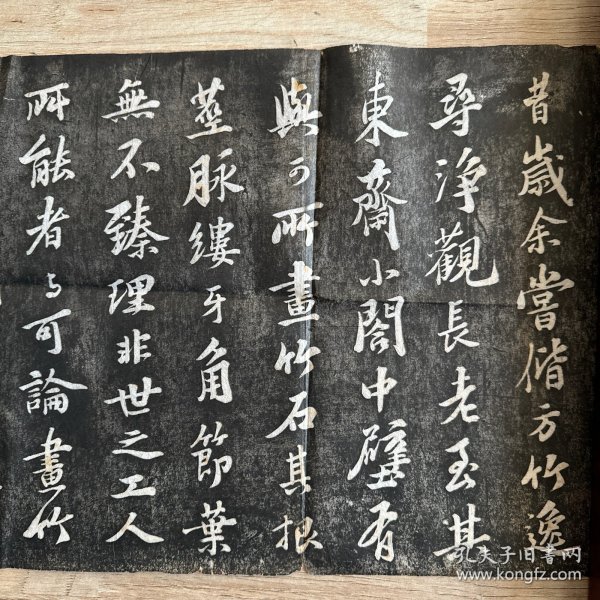 昔歲余嘗偕方竹逸
尋淨觀長老至其
東齋小閣中壁有
與可所畫竹石其根
莖脉縷牙角節葉
無不臻理非世之工人
所能者与可論畫竹
孔夫子旧书网
www.kongfz.com